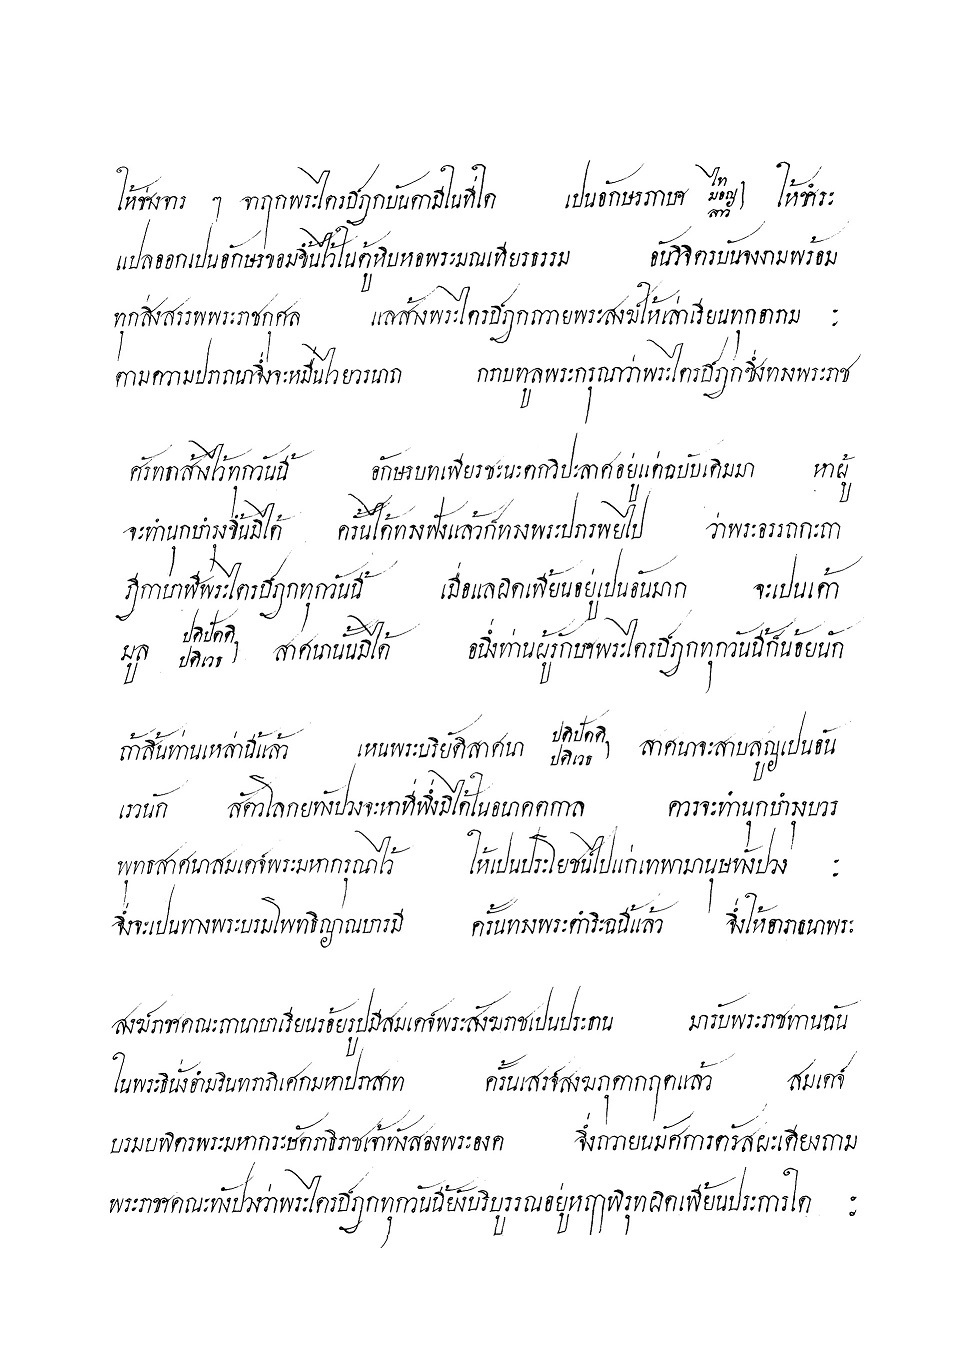 ให้ช่างจาร ๆ จาฤกพระไตรปิฎกบันดามีในที่ใด เปนอักษรภาษา ไท มอญ ลาว ให้ชำระ
แปลออกเปนอักษรขอมขึ้นไว้ในตู้หิบหอพระมณเทียรธรรม อันวิจิตรบันจงงามพร้อม
ทุกสิ่งสรรพพระราชกุศล แลส้างพระไตรปิฎกถวายพระสงฆ์ให้เล่าเรียนทุกอาราม ะ
ตามความปราถนาจึ่งจะหมื่นไวยวรนาถ กราบทูลพระกรุณาว่าพระไตรปิฎกซึ่งทรงพระราช
ศรัทธาส้างไว้ทุกวันนี้ อักษรบทเพียรชะนะตกวิปะลาศอยู่แต่ฉบับเดิมมา หาผู้
จะทำนุกบำรุงขึ้นมิได้ ครั้นได้ทรงฟังแล้วก็ทรงพระปรารพย์ไป ว่าพระอรรถกะถา
ฎีกาบาฬีพระไตรปิฎกทุกวันนี้ เมื่อแลผิดเพี้ยนอยู่เปนอันมาก จะเปนเค้า
มูล ปติปัตติ ปติเวธ สาศนานั้นมิได้ อนึ่งท่านผู้รักษาพระไตรปิฎกทุกวันนี้ก็น้อยนัก
ถ้าสิ้นท่านเหล่านี้แล้ว เหนพระปริยัติสาศนา ปติปัตติ ปติเวธ สาศนาจะสาบสูญเปนอัน
เรวนัก สัตวโลกยทังปวงจะหาที่พึ่งมิได้ในอนาคตกาล ควรจะทำนุกบำรุงบวร
พุทธสาศนาสมเดจ์พระมหากรุณาไว้ ให้เปนประโยชน์ไปแก่เทพามานุษทังปวง ะ
จึ่งจะเปนทางพระบรมโพทธิญาณบารมี ครั้นทรงพระดำริะฉนี้แล้ว จึ่งให้อาราธนาพระ
สงฆ์ราชาคณะถานาบาเรียนร้อยรูปมีสมเดจ์พระสังฆราชเปนประธาน มารับพระราชทานฉัน
ในพระธินั่งอำมรินทราภิเศกมหาปราสาท ครั้นเสรจ์สงฆภุตากฤตแล้ว สมเดจ์
บรมบพิตรพระมหากระษัตราธิราชเจ้าทังสองพระองค จึ่งถวายนมัศการตรัสผะเดียงถาม
พระราชาคณะทังปวงว่าพระไตรปิฎกทุกวันนี้ยังบริบูรรณอยู่หฤๅพิรุทผิดเพี้ยนประการใด ะ